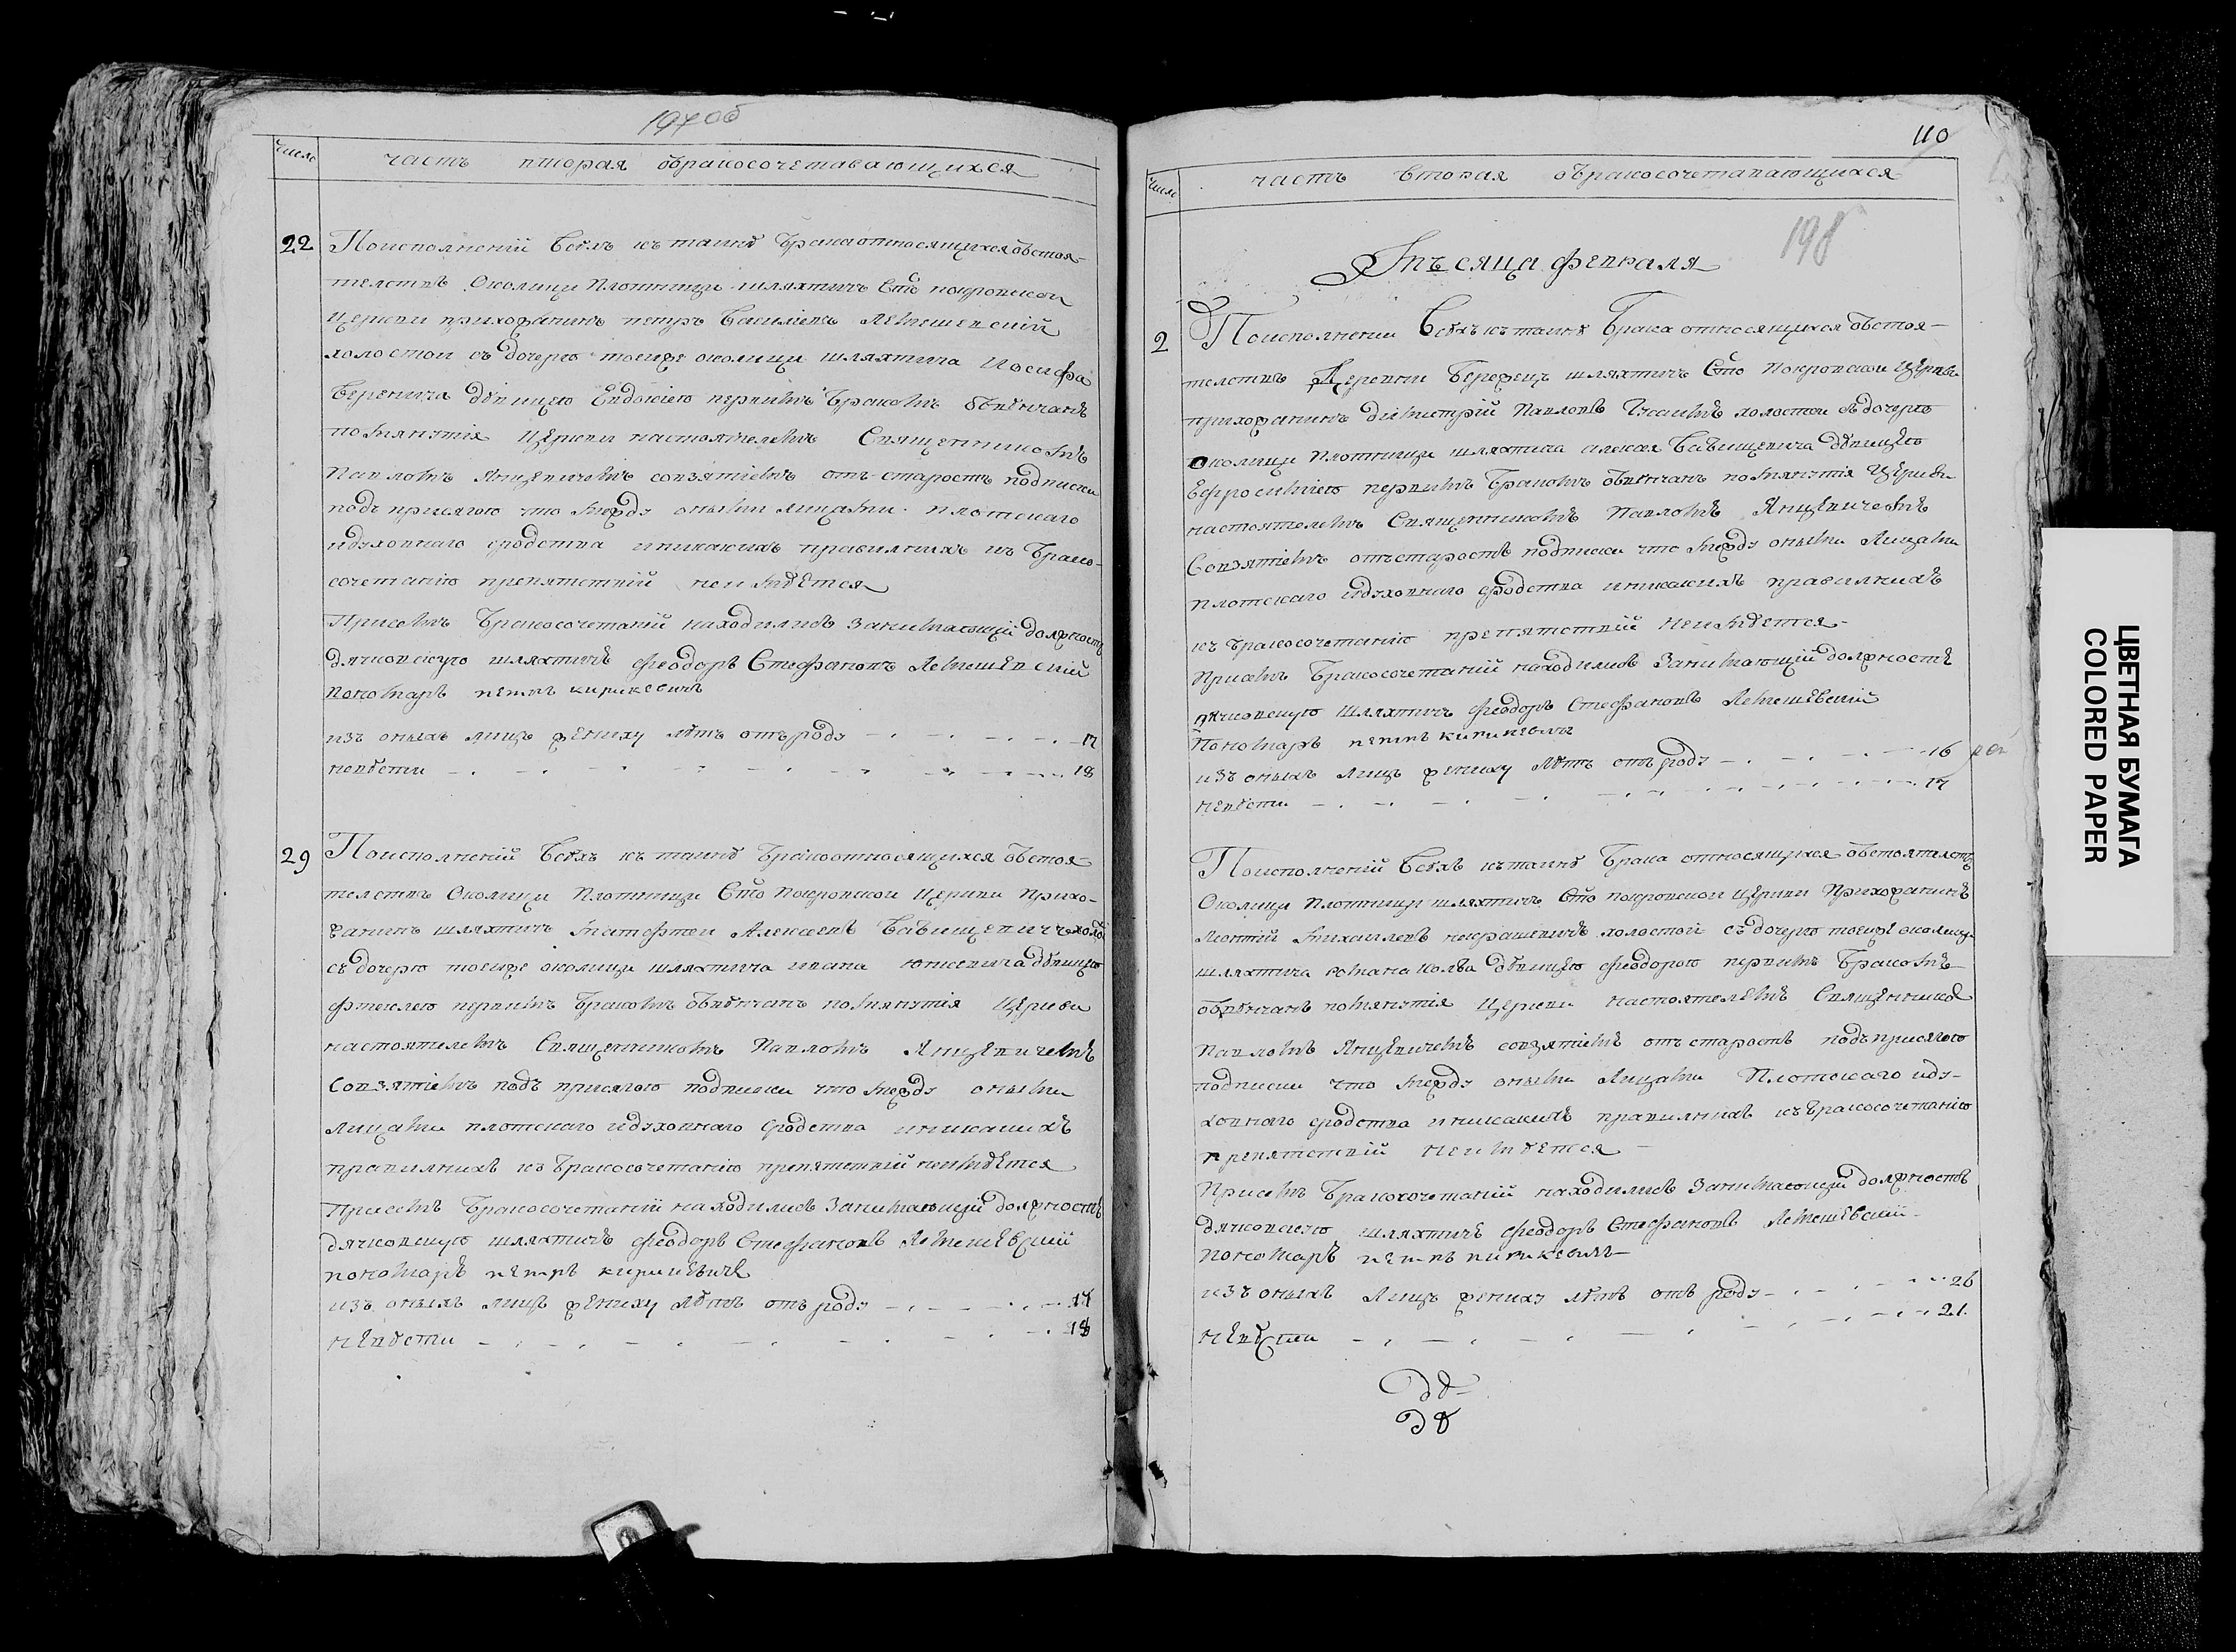 197об
число
часть вторая бракосочетавающихся
22
Поисполнений всѣхъ къ таинѣ брака относящихся обстоя-
телствъ Околици Плотници шляхтичъ Сто покровской
Церкви прихожанинъ петръ Василіевъ Лемешевскій
холостой съ дочерю тоейже околици шляхтича Иосифа
Веренича дѣвицею Евдокіею первимъ бракомъ обвѣнчанъ
помянутія Церкви настоятелемъ Священникомъ
Павломъ Янцевичемъ совзятіемъ отъ старостъ подписки
подъ присягою что между оными лицами плотскаго
идуховнаго сродства иникакихъ правилнихъ къ брако-
сочетанію препятствій неимѣется
Присемъ бракосочетаній находилисъ занимающій должность
дячковскую шляхтичъ феодоръ Стефановъ Лемешевскій
пономаръ петръ кирикевичъ
изъ оныхъ лицъ жениху лѣтъ отъ роду 17
невѣсти 18
29
Поисполнений всѣхъ къ таинѣ брака относящихся обстоя-
телствъ Околици Плотници Сто Покровской Церкви Прихо-
жанинъ шляхтичъ матофтей Алексеевъ Бавищевичъ холо
съ дочерю тоейже околици шляхтича ивана дѣвицею
фтеклею первимъ бракомъ обвѣнчанъ помянутія Церкви
настоятелемъ Священникомъ Павломъ Янцевичемъ
Совзятіемъ подъ присягою подписки что между оными
лицами плотскаго идуховнаго сродства иникакихъ
правилнихъ къ бракосочетанію препятствій неимѣется
Присемъ бракосочетаній находилисъ занимающій должность
дячковскую шляхтичъ феодоръ Стефановъ Лемешевскій
пономаръ петръ кирикевичъ
изъ оныхъ лицъ жениху лѣтъ отъ роду 17
невѣсти 18
110
число
часть вторая бракосочетавающихся
198
Мъсяца февраля
2
Поисполнении всѣхъ къ таинѣ брака относящихся обстоя-
телствъ Деревни Бережецъ шляхтичъ Сто Покровской Церкви
прихожанинъ димитрій Павловъ холостой сдочерю
околици Плотници шляхтича алексея Бавищевича дѣвицею
Ефросиніею первимъ бракомъ обвѣнчанъ помянутія Церкви
настоятелемъ Священникомъ Павломъ Янцевичемъ
Совзятіемъ отъ старостъ подписки что между оными лицами
плотскаго идуховнаго сродства иникакихъ правилнихъ
къ бракосочетанію препятствій Неимѣется
Присемъ бракосочетаній находилисъ занимающій должность
дячковскую шляхтичъ феодоръ Стефановъ Лемешевскій
Пономаръ петръ кирикевичъ
изъ оныхъ лицъ жениху лѣтъ отъ роду 16
невѣсти 17
Поисполнений всѣхъ къ таинѣ брака относящихся обстоятелствъ
Околици Плотници шляхтичъ Сто покровской Церкви Прихожанинъ
Леонтій михаилевъ некрашевичъ холостой съ дочерю тоейже околици
шляхтича романа дѣвицею феодорою первимъ бракомъ
обвѣнчанъ помянутія Церкви настоятелемъ Священнико
Павломъ Янцевичемъ совзятіемъ отъ старостъ подъ присягою
подписки что между оными лицами Плотскаго иду-
ховнаго сродства иникакихъ правилнихъ къ бракосочетанію
препятствій неимѣется
Присемъ бракосочетаній находилисъ занимающій должность
дячковскую шляхтичъ феодоръ Стефановъ Лемешевскій
пономаръ петръ кирикевичъ
изъ оныхъ лицъ жениху лѣтъ отъ роду 26
невѣсти 21
ЦВЕТНАЯ БУМАГА
COLORED PAPER